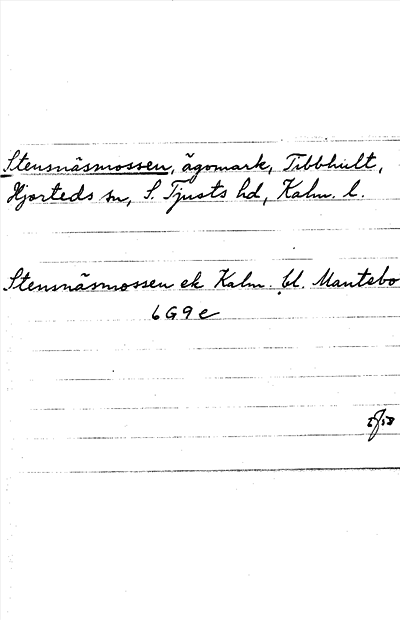 Stensnäsmossen, ägomark, Tibbhult,
Hjorteds sn, S. Tjusts hd, Kalm. l.
Stensnäsmossen ek Kalm. bl. Mantebo
6G9e